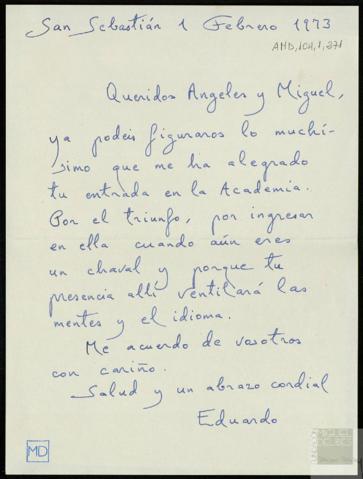 San Sebastián 1 Febrero 1973
AMD,104,1,271
Queridos Angeles y Miguel,
ya podeis figuraros lo muchí-
simo que me ha alegrado
tu entrada en la Academia.
Por el triunfo, por ingresar
en ella cuando aún eres
un chaval y porque tu
presencia allí ventilará las
mentes y el idioma.
Me acuerdo de vosotros
con cariño.
Salud y un abrazo cordial
Eduardo
MD